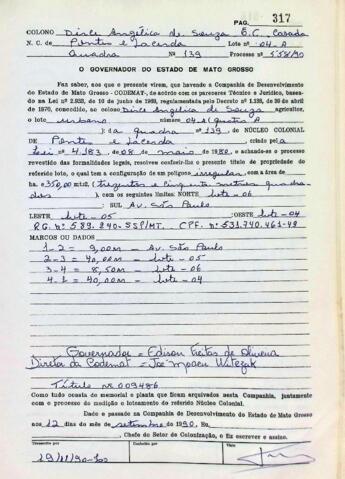 PAG. 317
COLONO Dirce Angélica de Souza B.C. Casada
N. C. de Pontes e Lacerda Lote nº 04-A
Quadra Nº 139 Processo nº 558/90
O GOVERNADOR DO ESTADO DE MATO GROSSO
Faz saber, aos que o presente virem, que havendo a Companhia de Desenvolvimento
do Estado de Mato Grosso - CODEMAT, de acordo com os pareceres Técnico e Jurídico, basea-
do na Lei nº 2.933, de 10 de junho de 1969, regulamentada pelo Decreto nº 1.138, de 30 de abril
de 1970, concedido, ao colono Dirce Angélica de Souza agricultor,
o lote urbano 04-A (Quatro A
) da quadra nº 139, do NÚCLEO COLONIAL
DE Pontes e Lacerda, criado pela
Lei nº 4.183, de 08 de maio de 1980, e achando-se o processo
revestido das formalidades legais, resolve conferir-lhe o presente título de propriedade do
referido lote, o qual tem a configuração de um polígono irregular, com a área de
ha. 350,00 mts² (trezentos e cinquenta metros quadra-
dos), com os seguintes limites: NORTE lote-06
SUL Av. São Paulo
LESTE lote-05 OESTE lote-04
RG. nº 589.840-SSP/MT. CPF. nº 531.740.461-49
MARCOS OU DADOS
1-2 = 9,00m - Av. São Paulo
2-3 = 40,00m - lote-05
3-4 = 8,50m - lote-06
4-1 = 40,00m - lote-04
Governador = Edison Freitas de Oliveira
Diretor da Codemat =
Título nº 009486
Como tudo consta do memorial e planta que ficam arquivados nesta Companhia, juntamente
com o processo de medição e loteamento do referido Núcleo Colonial.
Dado e passado na Companhia de Desenvolvimento do Estado de Mato Grosso
aos 12 dias do mês de setembro de 1990. Eu
Chefe do Setor de Colonização, o fiz escrever e assino.
Transcrito por Conferido por Visto